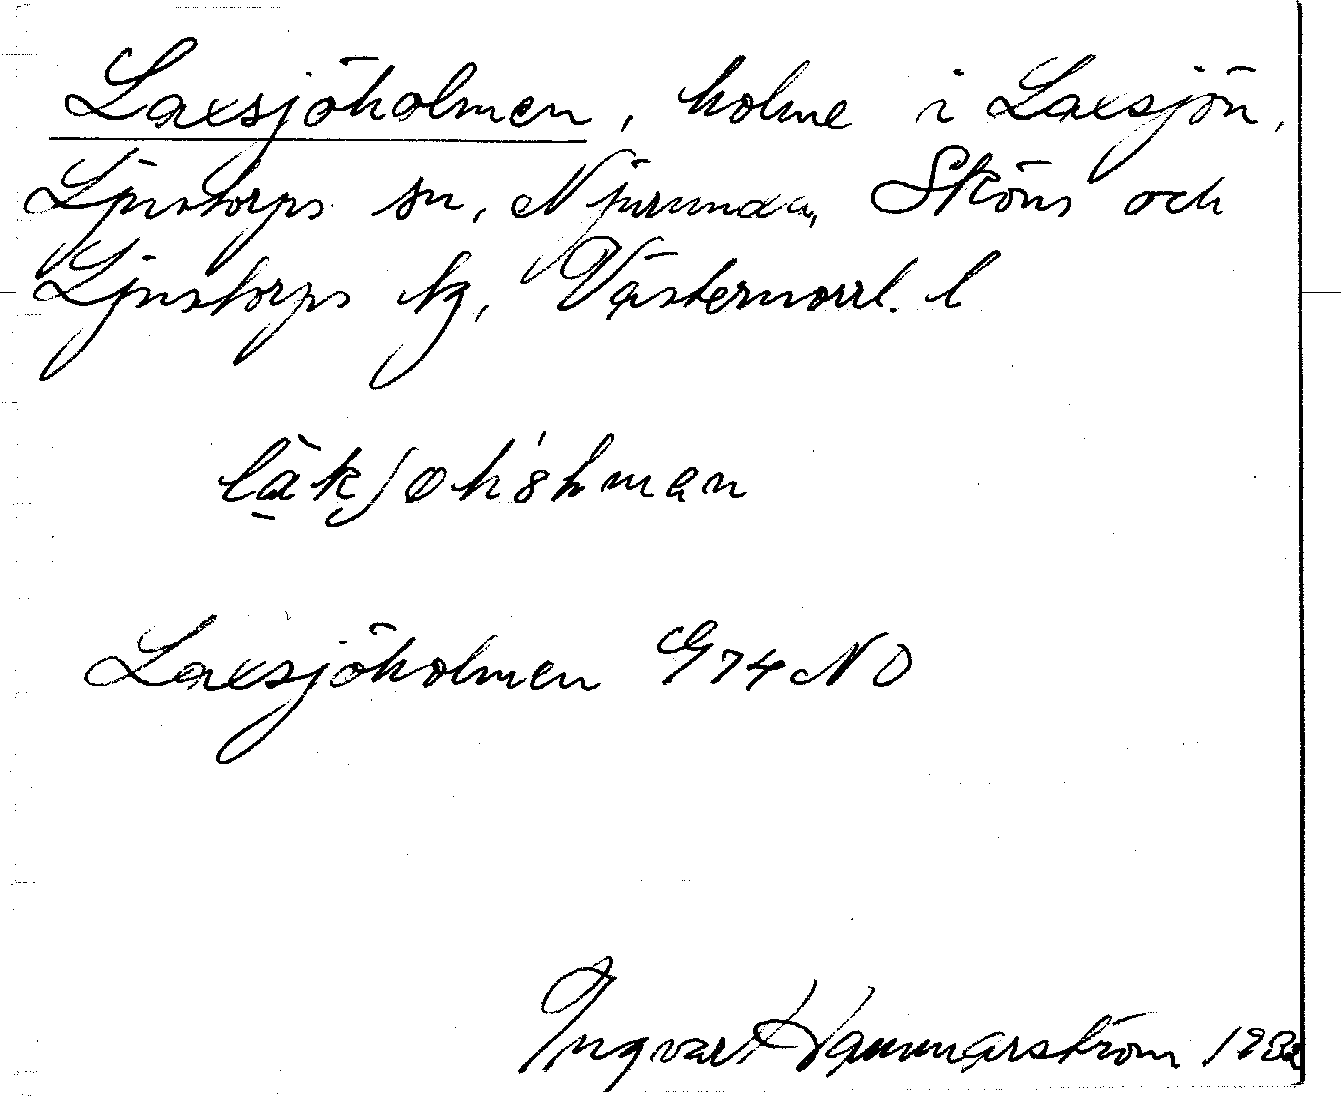 Laxsjöholmen, holme i Laxsjön,
Ljustorps sn, Njurunda, Sköns och
Ljustorps tg, Västernorrl. l
Laxsjöholmen G74 NO
Ingvar Hammarström